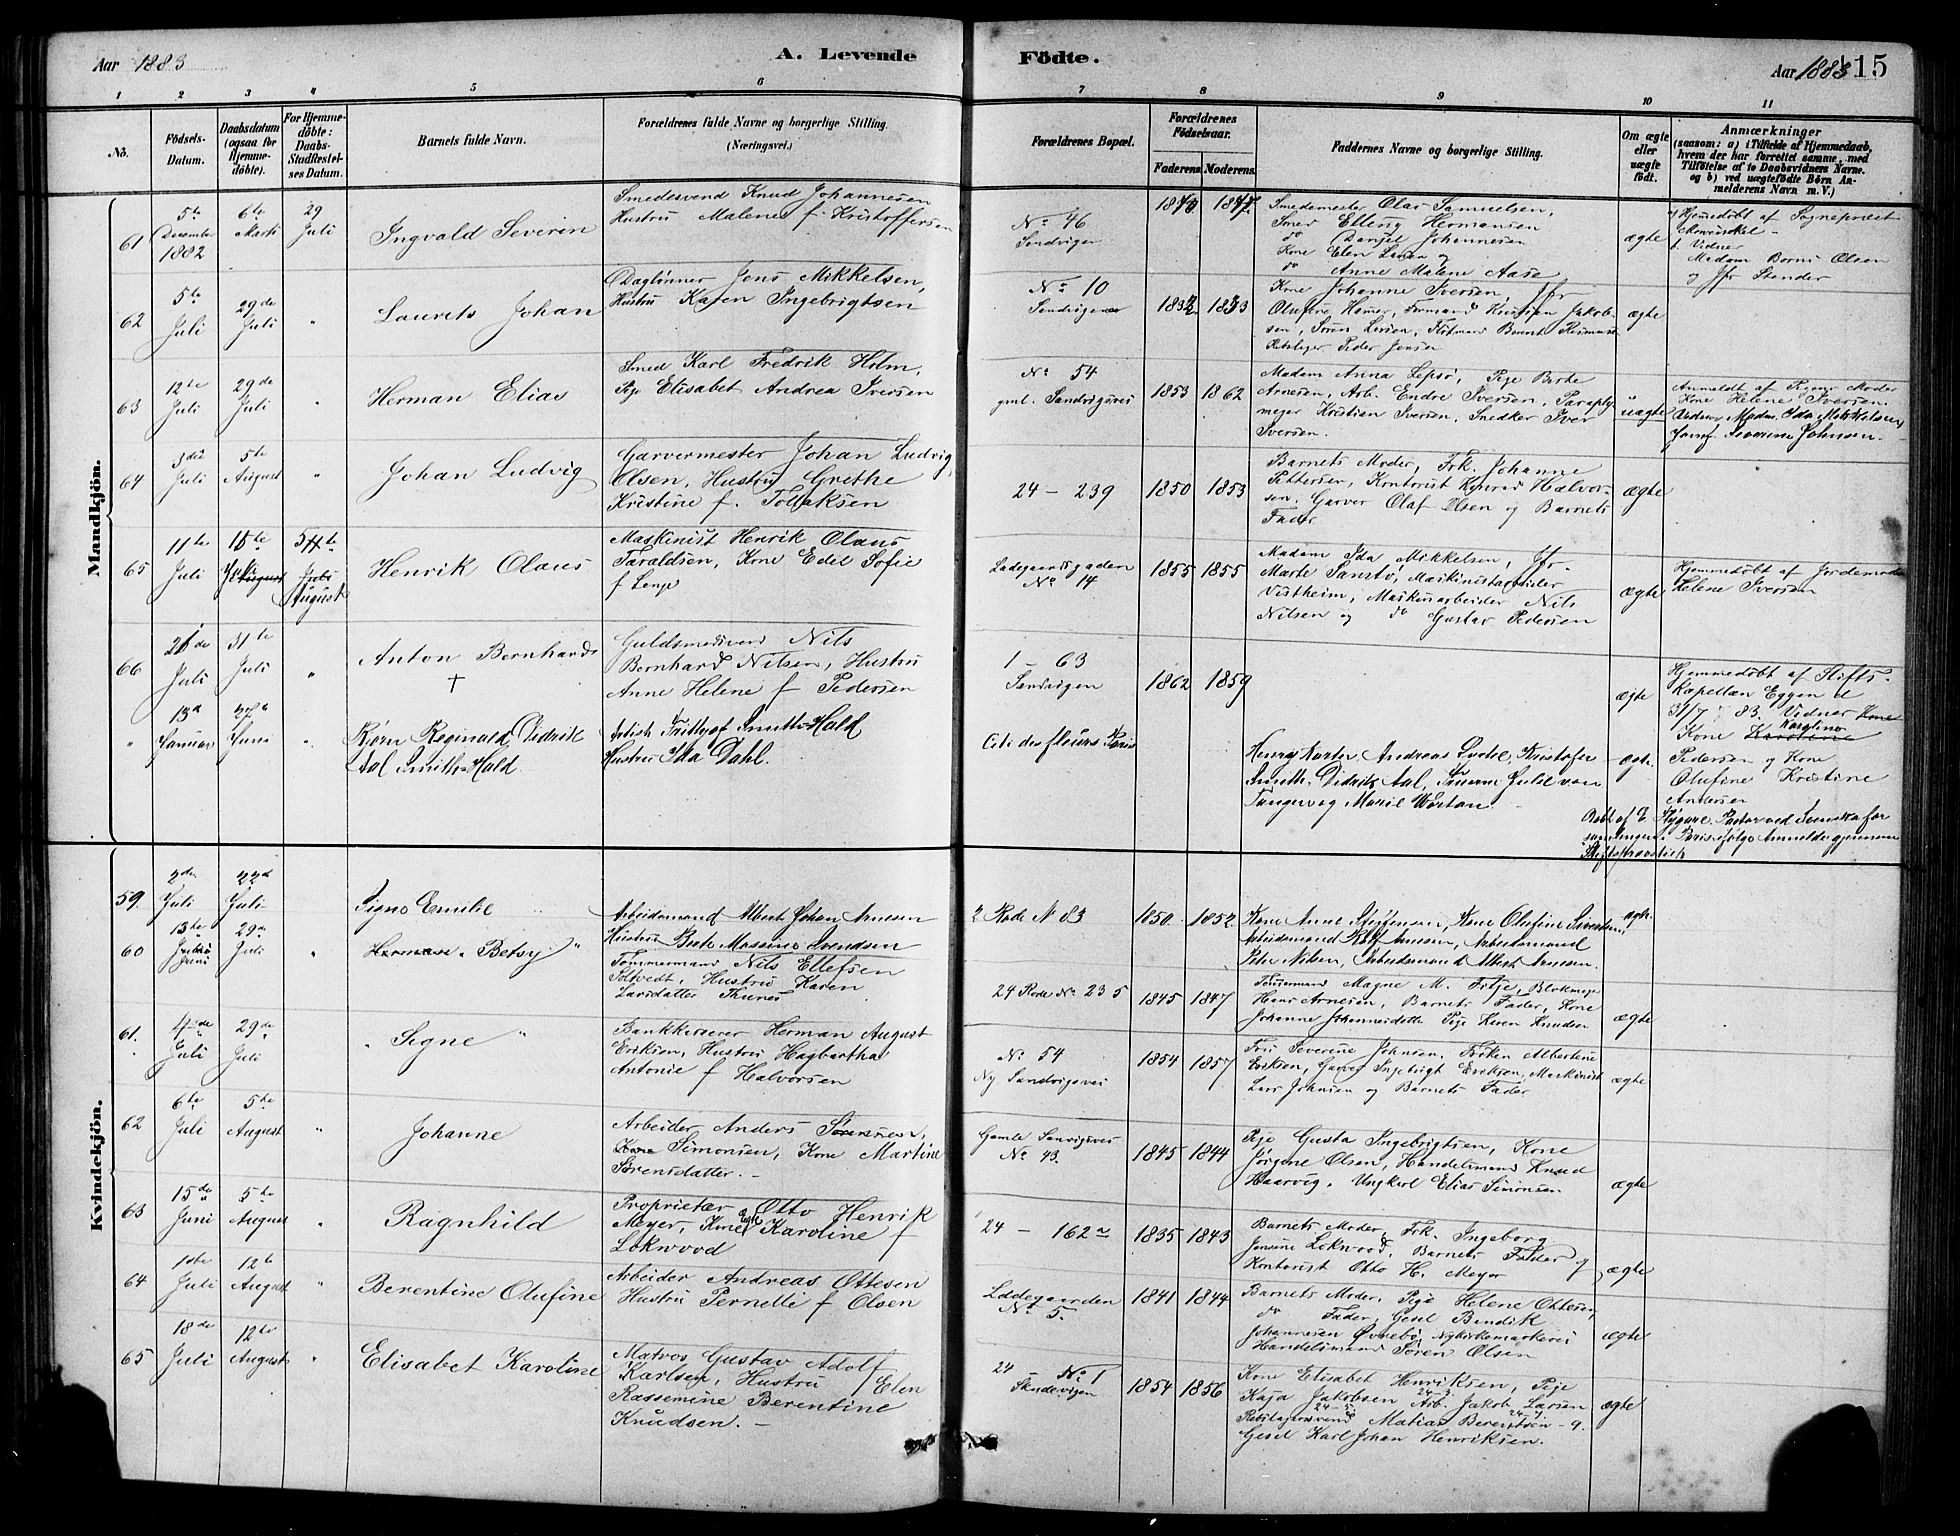 Aar 1883
A. Levende
Födte.
Aar 1883
115
1 2 3 4 5 6 7 8 9 10 11
No.
Fødsels-
Datum.
Daabsdatum
(ogsaa for
Hjemme-
døbte).
For Hjemme-
døbte:
Daabs-
Stadfæstel-
ses Datum.
Barnets fulde Navn.
Forældrenes fulde Navne og borgerlige Stilling.
(Næringsvei.)
Forældrenes Bopæl.
Forældrenes
Fødselsaar.
Faderens. Moderens.
Faddernes Navne og borgerlige Stilling.
Om ægte
eller
uægte
født.
Anmærkninger
(saasom: a) i Tilfælde af Hjemmedaab,
hvem der har forrettet samme, med
Tilføielse af to Daabsvidners Navne.
og b) ved uægtefødte Börn An-
melderens Navn m. V.)
Mandkjön.
61
5te
December
1882
6te
Marti
29
Juli
Ingvald Severin
Smedesvend Knud Johannesen
Hustru Malene f. Kristoffersen
No 46
Sandvigen
Smedemester Olav Samuelsen,
Smed Elling Hermansen
do Daniel Johannesen
Kone Elen Larsen og
do Anne Malene Aase
ægte
Hjemmedøbt af Sognepræst
Vidner
Madam Olsen
og Jfr
62
5te
Juli
29de
Juli
"
Laurits Johan
Daglönner Jens Mikkelsen,
Hustru Karen Ingebrigtsen
No 10
Sandvigen
1833
Kone Johanne Iversen Jfr
Olufine Formand Kristian Jakob-
sen, Sören Flötmand Berent
Peder Jensen
ægte
63
12te
Juli
29de
Juli
"
Herman Elias
Smed Karl Fredrik Holm,
Pige Elisabet Andrea Iversen
No 54
gml. Sandvigsvei
1853 1862
Madam Anna Lepsö, Pige Berte
Arnesen, Arb. Endre Iversen, Paraply-
mager Kristian Iversen, Snedker Iver
Iversen.
uægte
Anmeldt af Pigens Moder
Kone Helene Iversen.
Madm. Ida Mikkelsen
Jomf. Severine Johnsen.
64
3die
Juli
5te
August
"
Johan Ludvig
Garvermester Johan Ludvig
Olsen, Hustru Grethe
Kristine f. Tollaksen
24 - 239
1850 1853
Barnets Moder, Frk. Johanne
Pettersen, Kontorist Konrad Halvor-
sen, Garver Olaf Olsen og Barnets
Fader
ægte
65
11te
Juli
15te
Juli
5te
August
Henrik Olaus
Maskinist Henrik Olaus
Taraldsen, Kone Edel Sofie
f
Ladegaardsgaden
No 14
1855 1855
Madam Ida Mikkelsen, Jfr.
Marte Maskinistarbeider
Vestheim, Maskinarbeider Nils
Nilsen og do Gustav Pedersen
ægte
Hjemmedøbt af Jordemoder
Helene Iversen
66
Juli
31te
Juli
"
Anton Bernhard
†
Guldsmedsvend Nils
Bernhard Nilsen, Hustru
Anne Helene f Pedersen
1 - 63
Sandvigen
1862 1859
ægte
Hjemmedøbt af Stifts-
Kapellan Eggen d
31/7 83. Vidner
Kone Karoline
Pedersen og Kone
Olufine Kristine
Andersen
"
13
Januar
Juni
"
Bjørn Reginald Didrik
Aal Smith-Hald.
Artist Frithjof Smith-Hald
Hustru Ida Dahl.
Cité des fleurs Paris
Henry Andreas Kristofer
Smith. Didrik Aal,
ægte
Døbt af E Flygare Pastor ved Svenska för
samlingen i Paris ifølge Anmeldelse gjennem
Stiftsprovstiet
Kvindekjön.
59.
2den
Juli
22de
Juli
Signe Emilie
Arbeidsmand Albert Johan Arnesen
Hustru Berte Massine Svendsen
2 Rode N 83
1850. 1852.
Kone Anne Steffensen, Kone Olufine Sivertsen,
Arbeidsmand Arnesen, Arbeidsmand
Peter Nilsen, Arbeidsmand Albert Arnesen.
ægte
60
13te
Juni
29de
Juli
"
Betsy "
Tömmermand Nils Ellefsen
Hustru Karen
Larsdatter
24 Rode No 235
1845 1847
Tömmermand Magne M. Fitje, Blokmager
Hans Arnesen, Barnets Fader, Kone
Johanne Johannesdatter Pige Karen Knudsen
ægte
61.
4de
Juli
29de
Juli
" Signe "
Bankkasserer Herman August
Eriksen, Hustru Hagbartha
Antonie f Halvorsen
No 54
Ny Sandvigsvei
1854 1857
Fru Severine Johnsen, Fröken Albertine
Eriksen, Garver Ingebrigt Eriksen, Maskinist
Lars Johnsen og Barnets Fader
ægte
62
6te
Juli
5te
August
"
Johanne
Arbeider Anders Sörensen,
Kone Simonsen, Kone Martine
Sörensdatter. -
Gamle Sanvigsvei
No 43.
1845 1844
Pige Gusta Ingebrigtsen, Kone
Jørgine Olsen, Handelsmand Knud
Haarvig. Ungkarl Elias Simonsen
ægte
63
15de
Juni
5te
August
"
Ragnhild
Proprietær Otto Henrik
Meyer, Kone Karoline f
Lokwood
24 - 162a
1835 1843
Barnets Moder, Frk. Ingeborg
Jensine Lokwood, Barnets Fader og
Kontorist Otto H. Meyer
ægte
64
Juli
12te
August
"
Berentine Olufine
Arbeider Andreas Ottesen
Hustru Pernelle f Olsen
Ladegaarden
No 5.
1841 1844
Barnets Moder, Pige Helene Ottesen,
do Fader, Gesel Bendik
Johannesen Øvrebö, Nykirkemarkevei
Handelsmand Sören Olsen
ægte
65
18de
Juli
12te
August
"
Elisabet Karoline
Matros Gustav Adolf
Karlsen, Hustru Elen
Rassemine Berentine
Knudsen. -
24 No 1
Sandvigen
1854 1856
Kone Elisabet Henriksen, Pige
Kaja Jakobsen Arb. Jakob Larsen
Matias Berentsen
Gesel Karl Johan Henriksen.
ægte